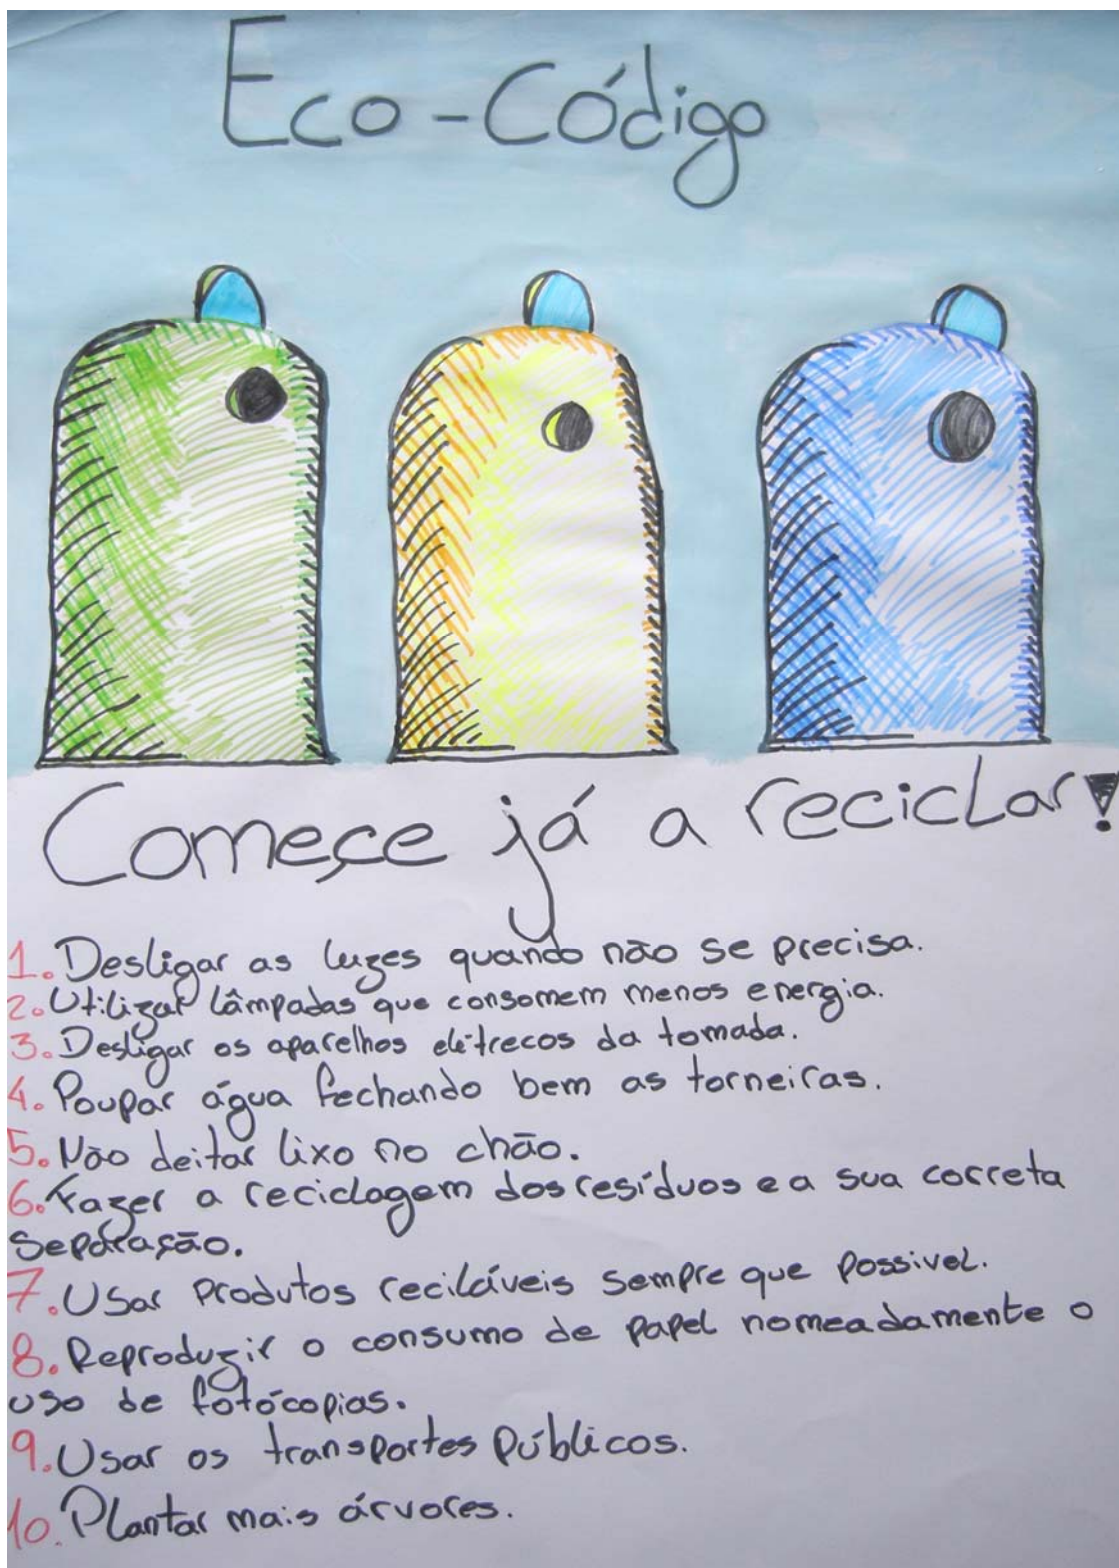 Eco-Código
Começe já a reciclar!
1. Desligar as luzes quando não se precisa.
2. Utilizar lâmpadas que consomem menos energia.
3. Desligar os aparelhos elétrecos da tomada.
4. Poupar água fechando bem as torneiras.
5. Não deitar lixo no chão.
6. Fazer a reciclagem dos resíduos e a sua correta
separação.
7. Usar produtos reciláveis sempre que possivel.
8. Reproduzir o consumo de papel nomeadamente o
uso de fotócopias.
9. Usar os transportes públicos.
10. Plantar mais árvores.